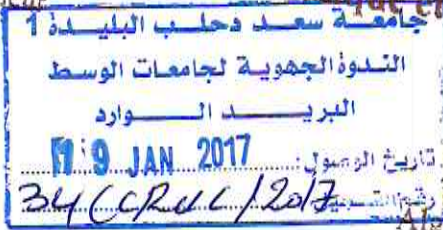 جامعة سعد دحلب البليدة 1
الندوة الجهوية لجامعات الوسط
البريد الوارد
تاريخ الوصول: 19 JAN 2017
34/CCRUC/2017